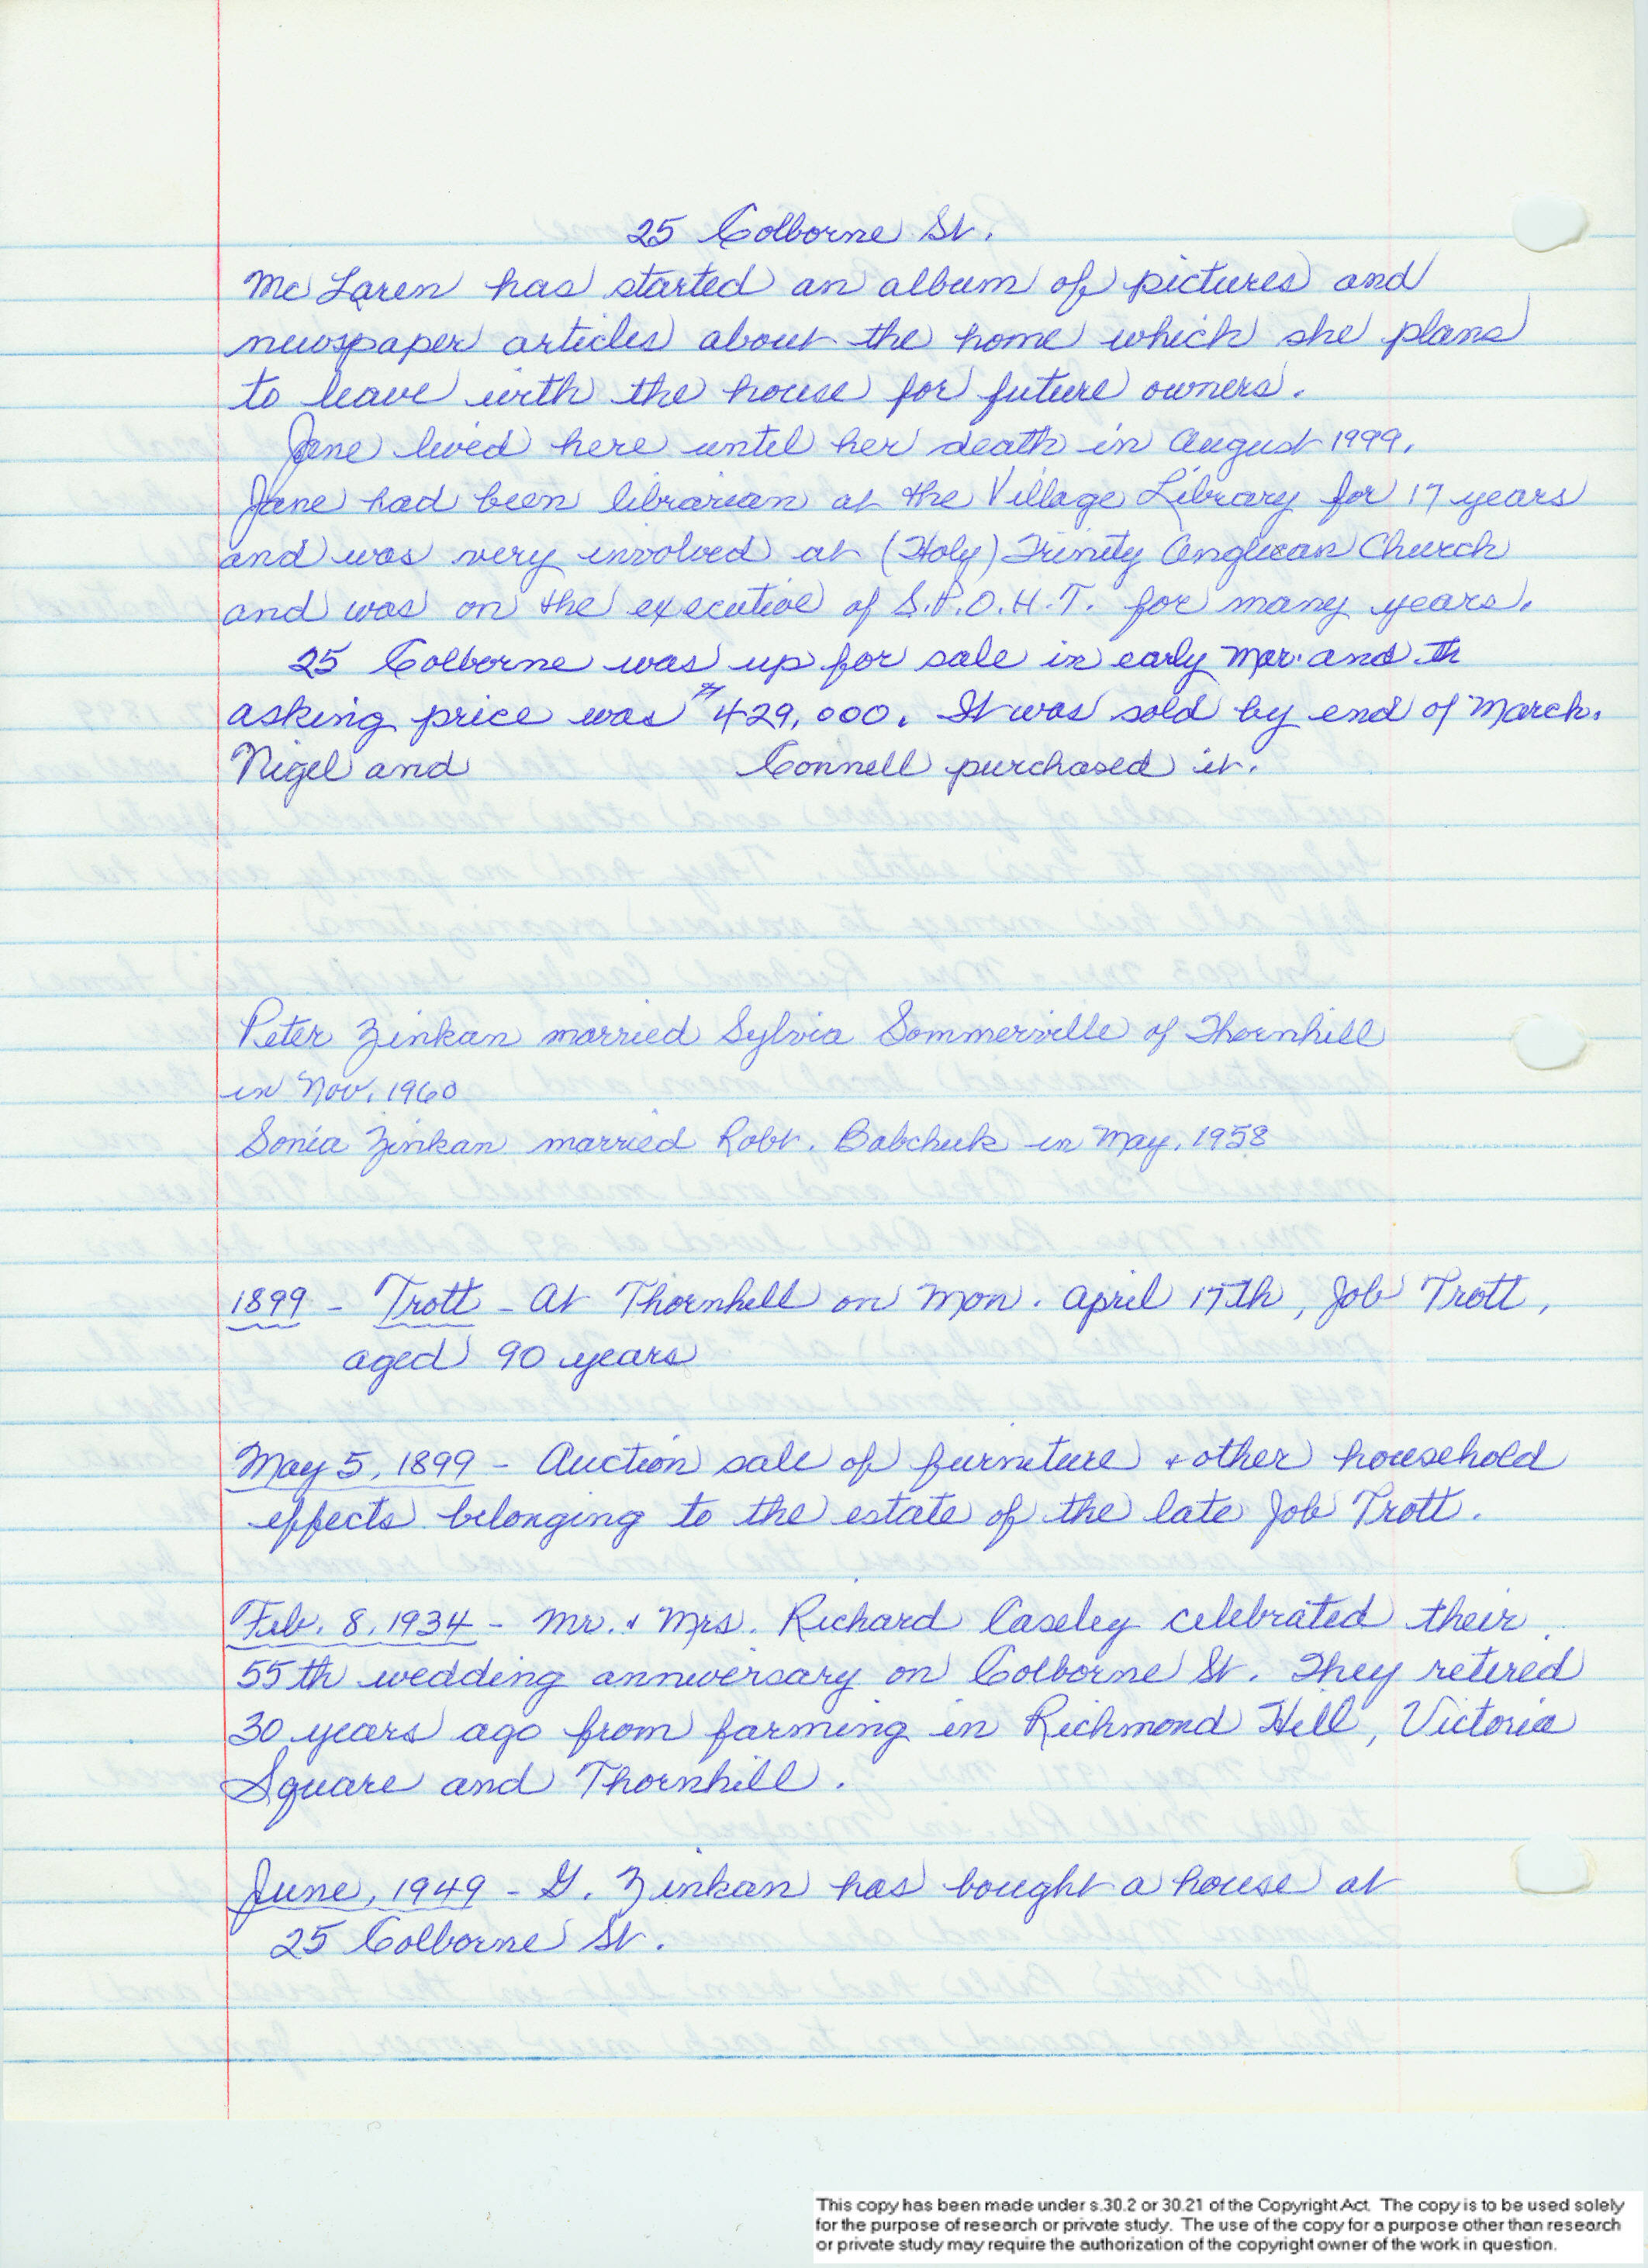 25 Colborne St.
McLaren has started an album of pictures and
newspaper articles about the home which she plans
to leave with the house for future owners.
Jane lived here until her death in August 1999.
Jane had been librarian at the Village Library for 17 years
and was very involved at (Holy) Trinity Anglican Church
and was on the executive of S.P.O.H.T. for many years.
25 Colborne was up for sale in early Mar. and th
asking price was $429,000. It was sold by end of March.
Nigel and Connell purchased it.
Peter Zinkan married Sylvia Sommerville of Thornhill
in Nov. 1960
Sonia Zinkan married Robt. Babchuk in May, 1958
1899 - Trott - At Thornhill on Mon. April 17th, Job Trott,
aged 90 years
May 5, 1899 - Auction sale of furniture & other household
effects belonging to the estate of the late Job Trott.
Feb. 8, 1934 - Mr. & Mrs. Richard Caseley celebrated their
55th wedding anniversary on Colborne St. They retired
30 years ago from farming in Richmond Hill, Victoria
Square and Thornhill.
June, 1949 - G. Zinkan has bought a house at
25 Colborne St.
This copy has been made under s.30.2 or 30.21 of the Copyright Act. The copy is to be used solely
for the purpose of research or private study. The use of the copy for a purpose other than research
or private study may require the authorization of the copyright owner of the work in question.